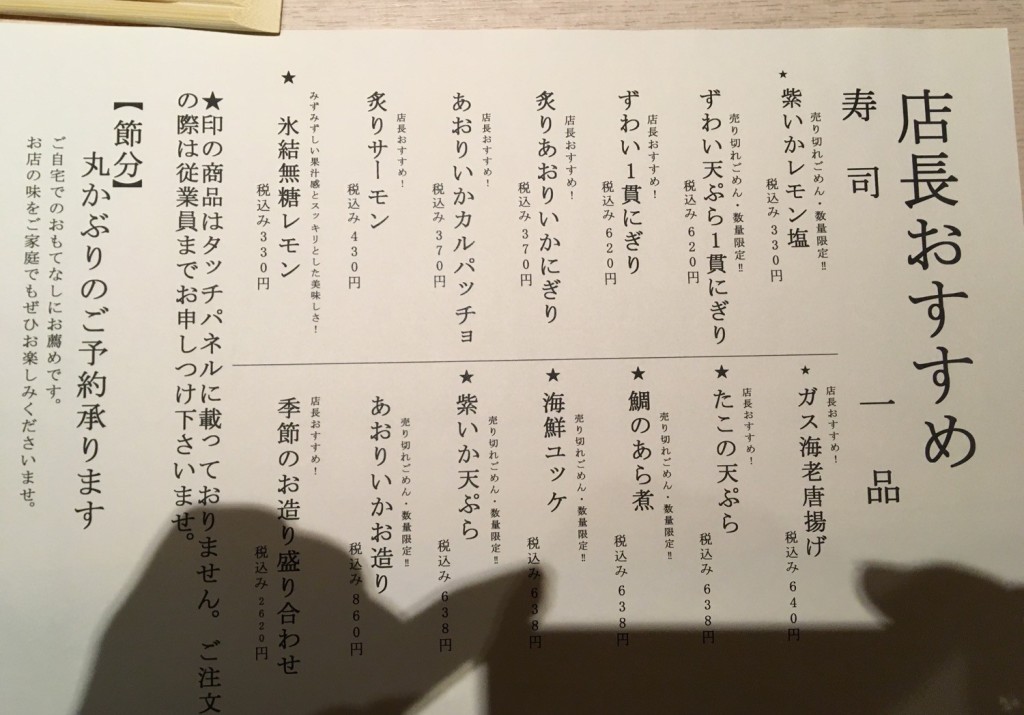 店長おすすめ
寿司
売り切れごめん・数量限定!!
★紫いかレモン塩
税込み330円
売り切れごめん・数量限定!!
ずわい天ぷら1貫にぎり
税込み620円
店長おすすめ!
ずわい1貫にぎり
税込み620円
店長おすすめ!
炙りあおりいかにぎり
税込み370円
店長おすすめ!
あおりいかカルパッチョ
税込み370円
店長おすすめ!
炙りサーモン
税込み430円
みずみずしい果汁感とスッキリとした美味しさ!
★氷結無糖レモン
税込み330円
一品
店長おすすめ!
★ガス海老唐揚げ
税込み640円
店長おすすめ!
★たこの天ぷら
税込み638円
売り切れごめん・数量限定!!
★鯛のあら煮
税込み638円
売り切れごめん・数量限定!!
★海鮮ユッケ
税込み638円
売り切れごめん・数量限定!!
★紫いか天ぷら
税込み638円
売り切れごめん・数量限定!!
あおりいかお造り
税込み860円
店長おすすめ!
季節のお造り盛り合わせ
税込み2620円
★印の商品はタッチパネルに載っておりません。ご注文
の際は従業員までお申しつけ下さいませ。
【節分】
丸かぶりのご予約承ります
ご自宅でのおもてなしにお薦めです。
お店の味をご家庭でもぜひお楽しみくださいませ。